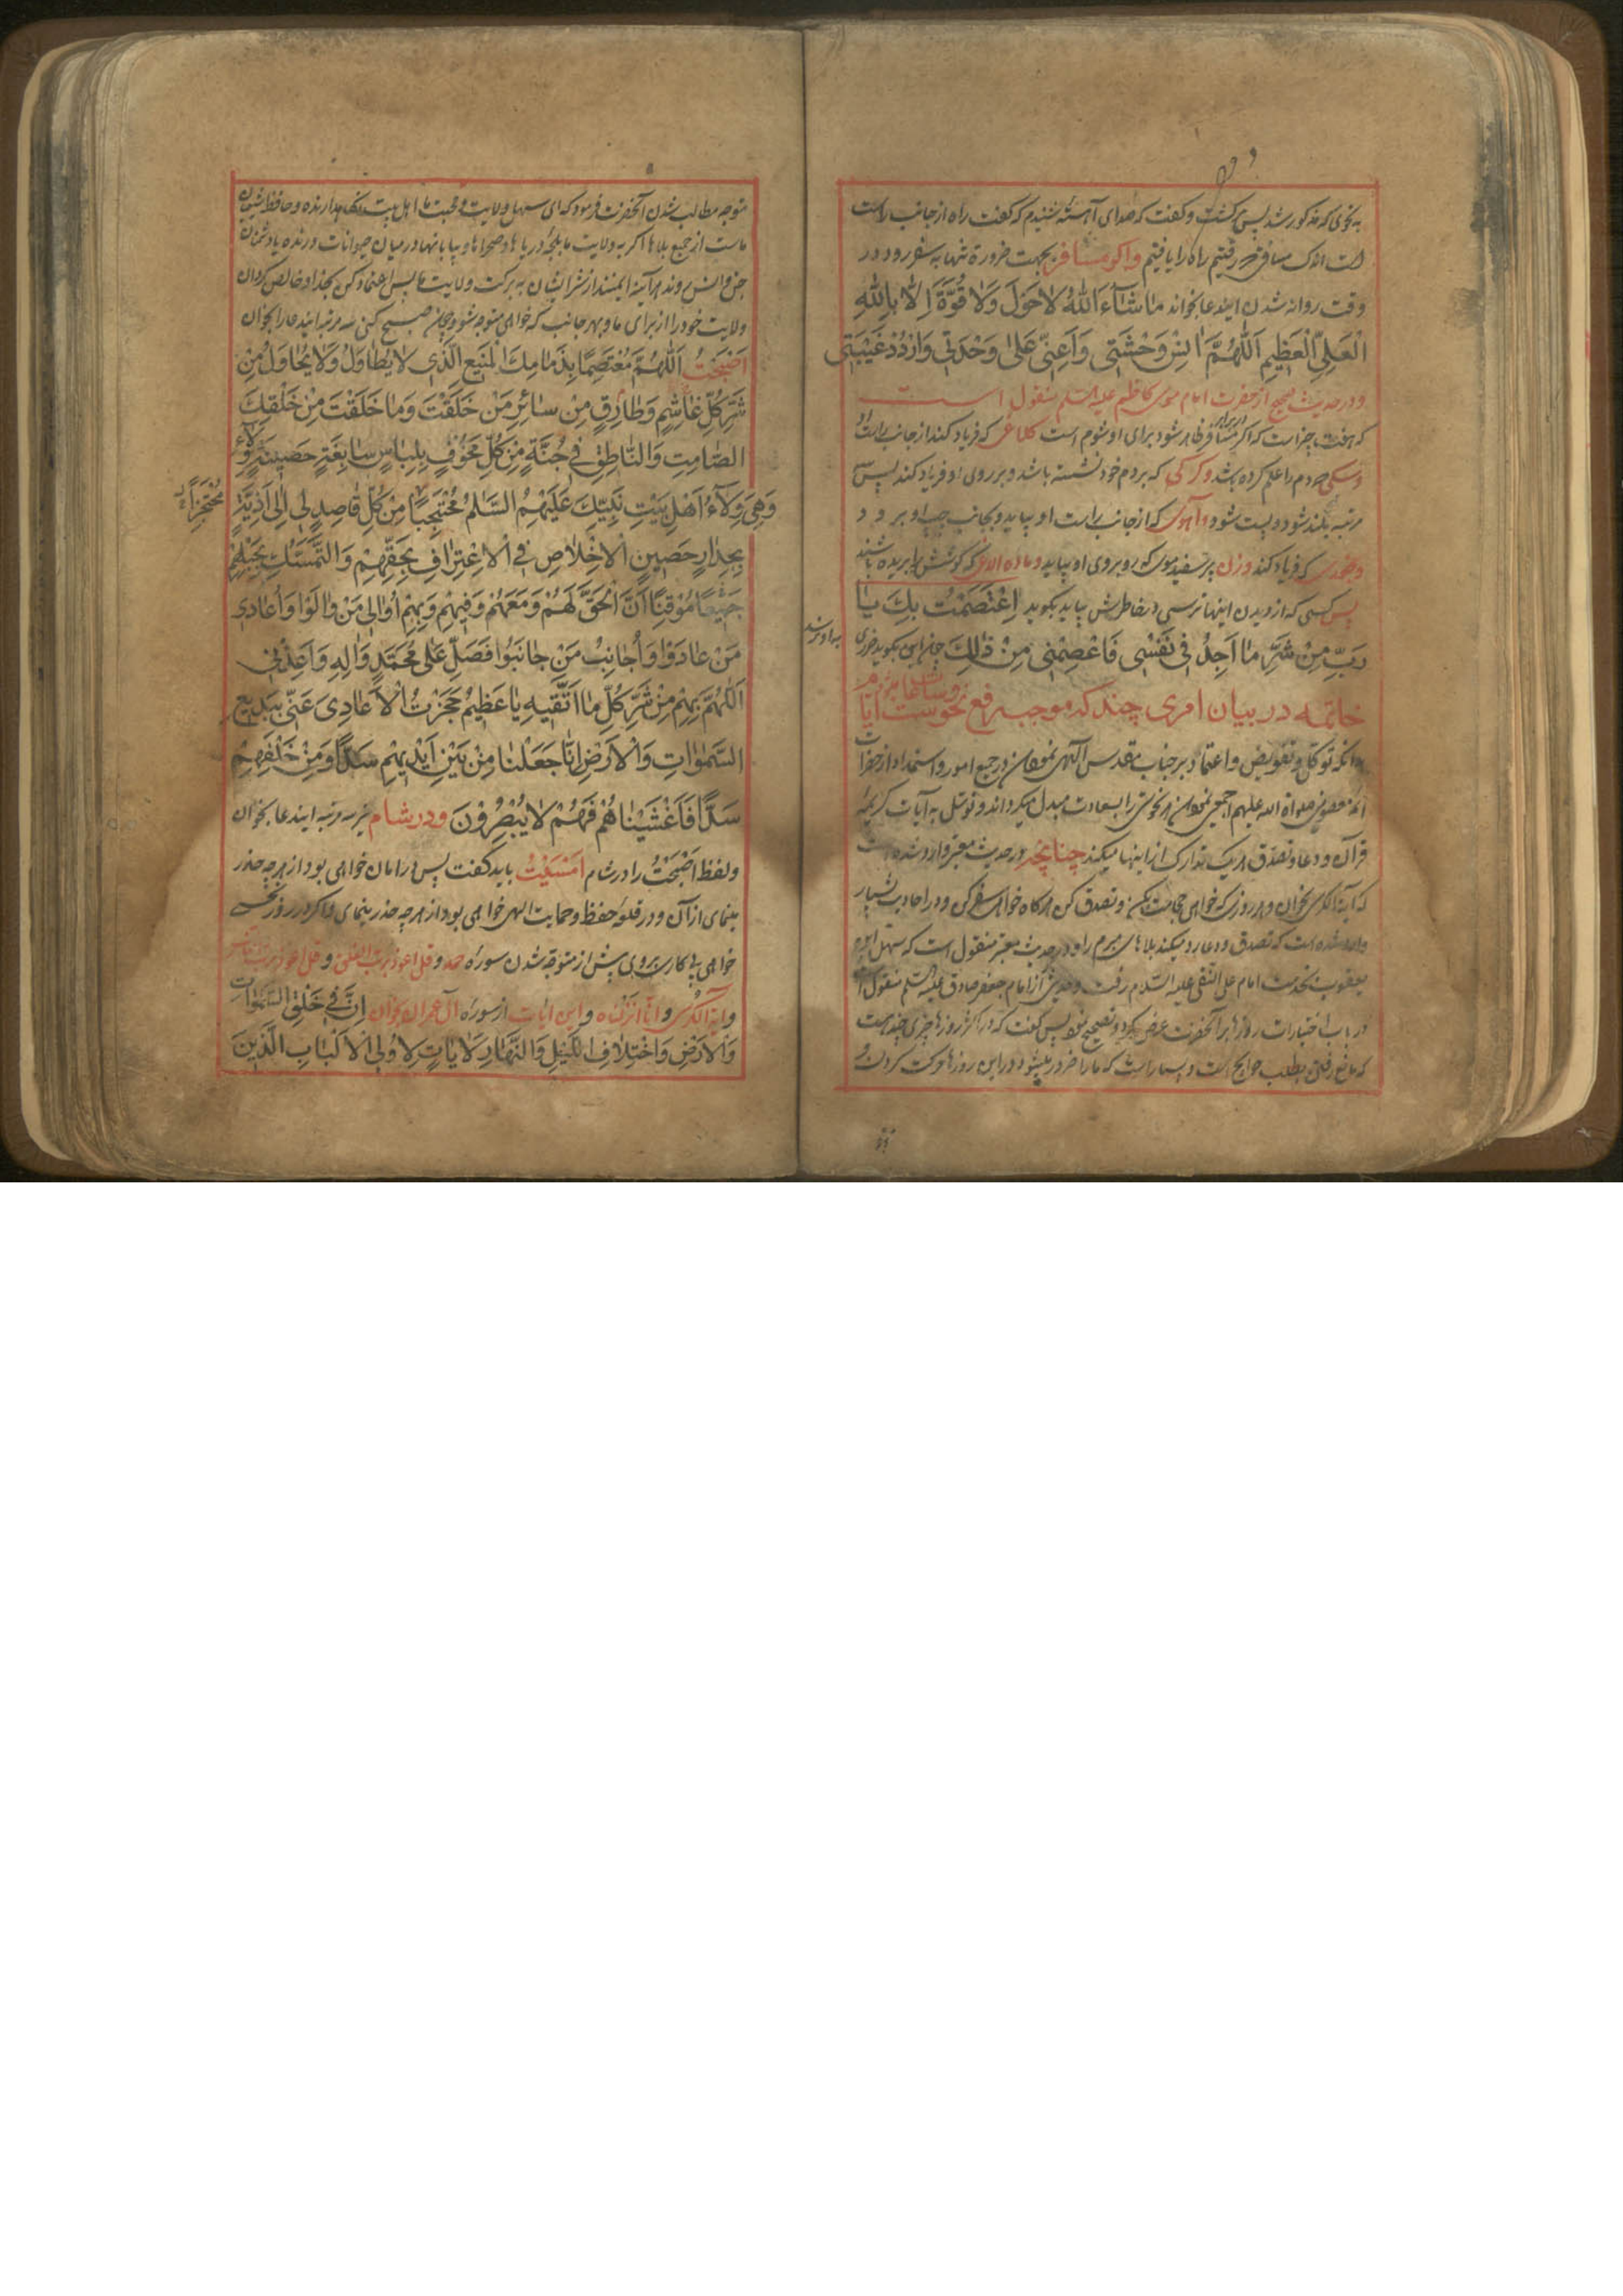 به نحوی که مذکور شد پس برگشت و گفت که صدای آهسته شنیدم که گفت راه از جانب راست
است اندک مسافتی که رفتیم راه را یافتیم و اگر مسافر بجهت ضرورة تنها به سفر رود در
وقت روانه شدن ایندعا بخواند مَا شَآءَ اللّٰهُ لَا حَوْلَ وَلَا قُوَّةَ اِلَّا بِاللّٰهِ
الْعَلِیِّ الْعَظِیمِ اَللّٰهُمَّ اٰنِسْ وَحْشَتِی وَاَعِنِّی عَلٰی وَحْدَتِی وَارْدُدْ غَیْبَتِی
و در حدیث صحیح از حضرت امام موسی کاظم علیه السلم منقول است
که هفت چیز است که اگر در برابر مسافر ظاهر شود برای او شوم است کلاغی که فریاد کند از جانب راست او
و سگی که دم را علم کرده باشد و گرگی که بر دم خود نشسته باشد و بر روی او فریاد کند پس سه
مرتبه بلند شود و پست شود و آهوی که از جانب راست او بیاید و بجانب چپ او برود
و جغدی که فریاد کند و زن پیر سفید موی که روبروی او بیاید و ماده الاغی که گوشش را بریده باشند
پس کسی که از دیدن اینها ترسی در خاطرش بیاید بگوید اِعْتَصَمْتُ بِكَ یٰا
رَبِّ مِنْ شَرِّ مٰا اَجِدُ فی نَفْسی فَاعْصِمْنی مِنْ ذٰلِكَ چون این بگوید ضرری
به او نرسد
خاتمه در بیان امری چند که موجب رفع نحوست ایام و ساعتها میشود
بدانکه توکل و تفویض و اعتماد بر جناب مقدس الٓهی نمودن در جمیع امور و استمداد از حضرات
ائمه معصومین صلواة الله علیهم اجمعین نمودن نحوستی را بسعادت مبدل میگرداند و توسل به آیات کریمه
قرآن و دعا و تصدق هر یک تدارک از اینها میکند چنانچه در حدیث معتبر وارد شده است
که آیة الکرسی بخوان و هر روزی که خواهی حجامت بکن و تصدق کن هر گاه خواهی سفر کن و در احادیث بسیار
وارد شده است که تصدق و دعا رد میکند بلاهای مبرم را و در حدیث معتبر منقول است که سهل ابن
یعقوب بخدمت امام علی النقی علیه السلام رفت و حدیثی از امام جعفر صادق علیه السلم منقول است
در باب اختیارات روزها بر آنحضرت عرض کرد و تصحیح نمود پس گفت که در اکثر روزها چیزی چند هست
که مانع رفتن بطلب حوایج است و بسیار است که ما را ضرور میشود در این روزها حرکت کردن و
متوجه مطالب شدن آنحضرت فرمود که ای سهل ولایت و محبت ما اهل بیت نگاه دارنده و حافظ شیعیان
ماست از جمیع بلاها اگر به ولایت ما بلجه دریاها و صحراها و بیابانها در میان حیوانات درنده یا دشمنان
جن و انس روند هر آینه ایمنند از شر ایشان به برکت ولایت ما پس اعتماد کن بخدا و خالص گردان
ولایت خود را از برای ما و بهر جانب که خواهی متوجه شو و چون صبح کنی سه مرتبه ایندعا را بخوان
اَصْبَحْتُ اَللّٰهُمَّ مُعْتَصِمًا بِذِمٰامِكَ الْمَنیعِ الَّذی لٰا یُطٰاوَلُ وَلٰا یُحٰاوَلُ مِنْ
شَرِّ كُلِّ غٰاشِمٍ وَطٰارِقٍ مِنْ سٰائِرِ مَنْ خَلَقْتَ وَمٰا خَلَقْتَ مِنْ خَلْقِكَ
الصّٰامِتِ وَالنّٰاطِقِ فی جُنَّةٍ مِنْ كُلِّ مَخُوفٍ بِلِبٰاسٍ سٰابِغَةٍ حَصینَةٍ وَلٰاءِ
وَهِیَ وِلٰاءُ اَهْلِ بَیْتِ نَبِیِّكَ عَلَیْهِمُ السَّلٰمُ مُحْتَجِبًا مِنْ كُلِّ قٰاصِدٍ لی اِلٰی اَذِیَّةٍ
مُحْتَجِزًا
بِجِدٰارٍ حَصینِ الْاِخْلٰاصِ فِی الْاِعْتِرٰافِ بِحَقِّهِمْ وَالتَّمَسُّكِ بِحَبْلِهِمْ
جَمیعًا مُوقِنًا اَنَّ الْحَقَّ لَهُمْ وَمَعَهُمْ وَفیهِمْ وَبِهِمْ اُوٰالی مَنْ وٰالَوْا وَاُعٰادی
مَنْ عٰادَوْا وَاُجٰانِبُ مَنْ جٰانَبُوا فَصَلِّ عَلٰی مُحَمَّدٍ وَاٰلِهِ وَاَعِذْنی
اَللّٰهُمَّ بِهِمْ مِنْ شَرِّ كُلِّ مٰا اَتَّقیهِ یٰا عَظیمُ حَجَزْتُ الْاَعٰادِیَ عَنّی بِبَدیعِ
السَّمٰوٰاتِ وَالْاَرْضِ اِنّٰا جَعَلْنٰا مِنْ بَیْنِ اَیْدیهِمْ سَدًّا وَمِنْ خَلْفِهِمْ
سَدًّا فَاَغْشَیْنٰاهُمْ فَهُمْ لٰا یُبْصِرُونَ و در شام نیز سه مرتبه ایندعا بخوان
و لفظ اَصْبَحْتُ را در شام اَمْسَیْتُ باید گفت پس در امان خواهی بود از هر چه حذر
مینمای از آن و در قلعهٔ حفظ و حمایت الهی خواهی بود از هر چه حذر مینمای و اگر در روز نحسی
خواهی پی کاری بروی پیش از متوجه شدن سورهٔ حمد و قل اعوذ برب الفلق و قل اعوذ برب الناس
و آیة الکرسی و انا انزلناه و این ایات از سورهٔ آل عمران بخوان اِنَّ فی خَلْقِ السَّمٰوٰاتِ
وَالْاَرْضِ وَاخْتِلٰافِ اللَّیْلِ وَالنَّهٰارِ لَاٰیٰاتٍ لِاُولِی الْاَلْبٰابِ الَّذینَ